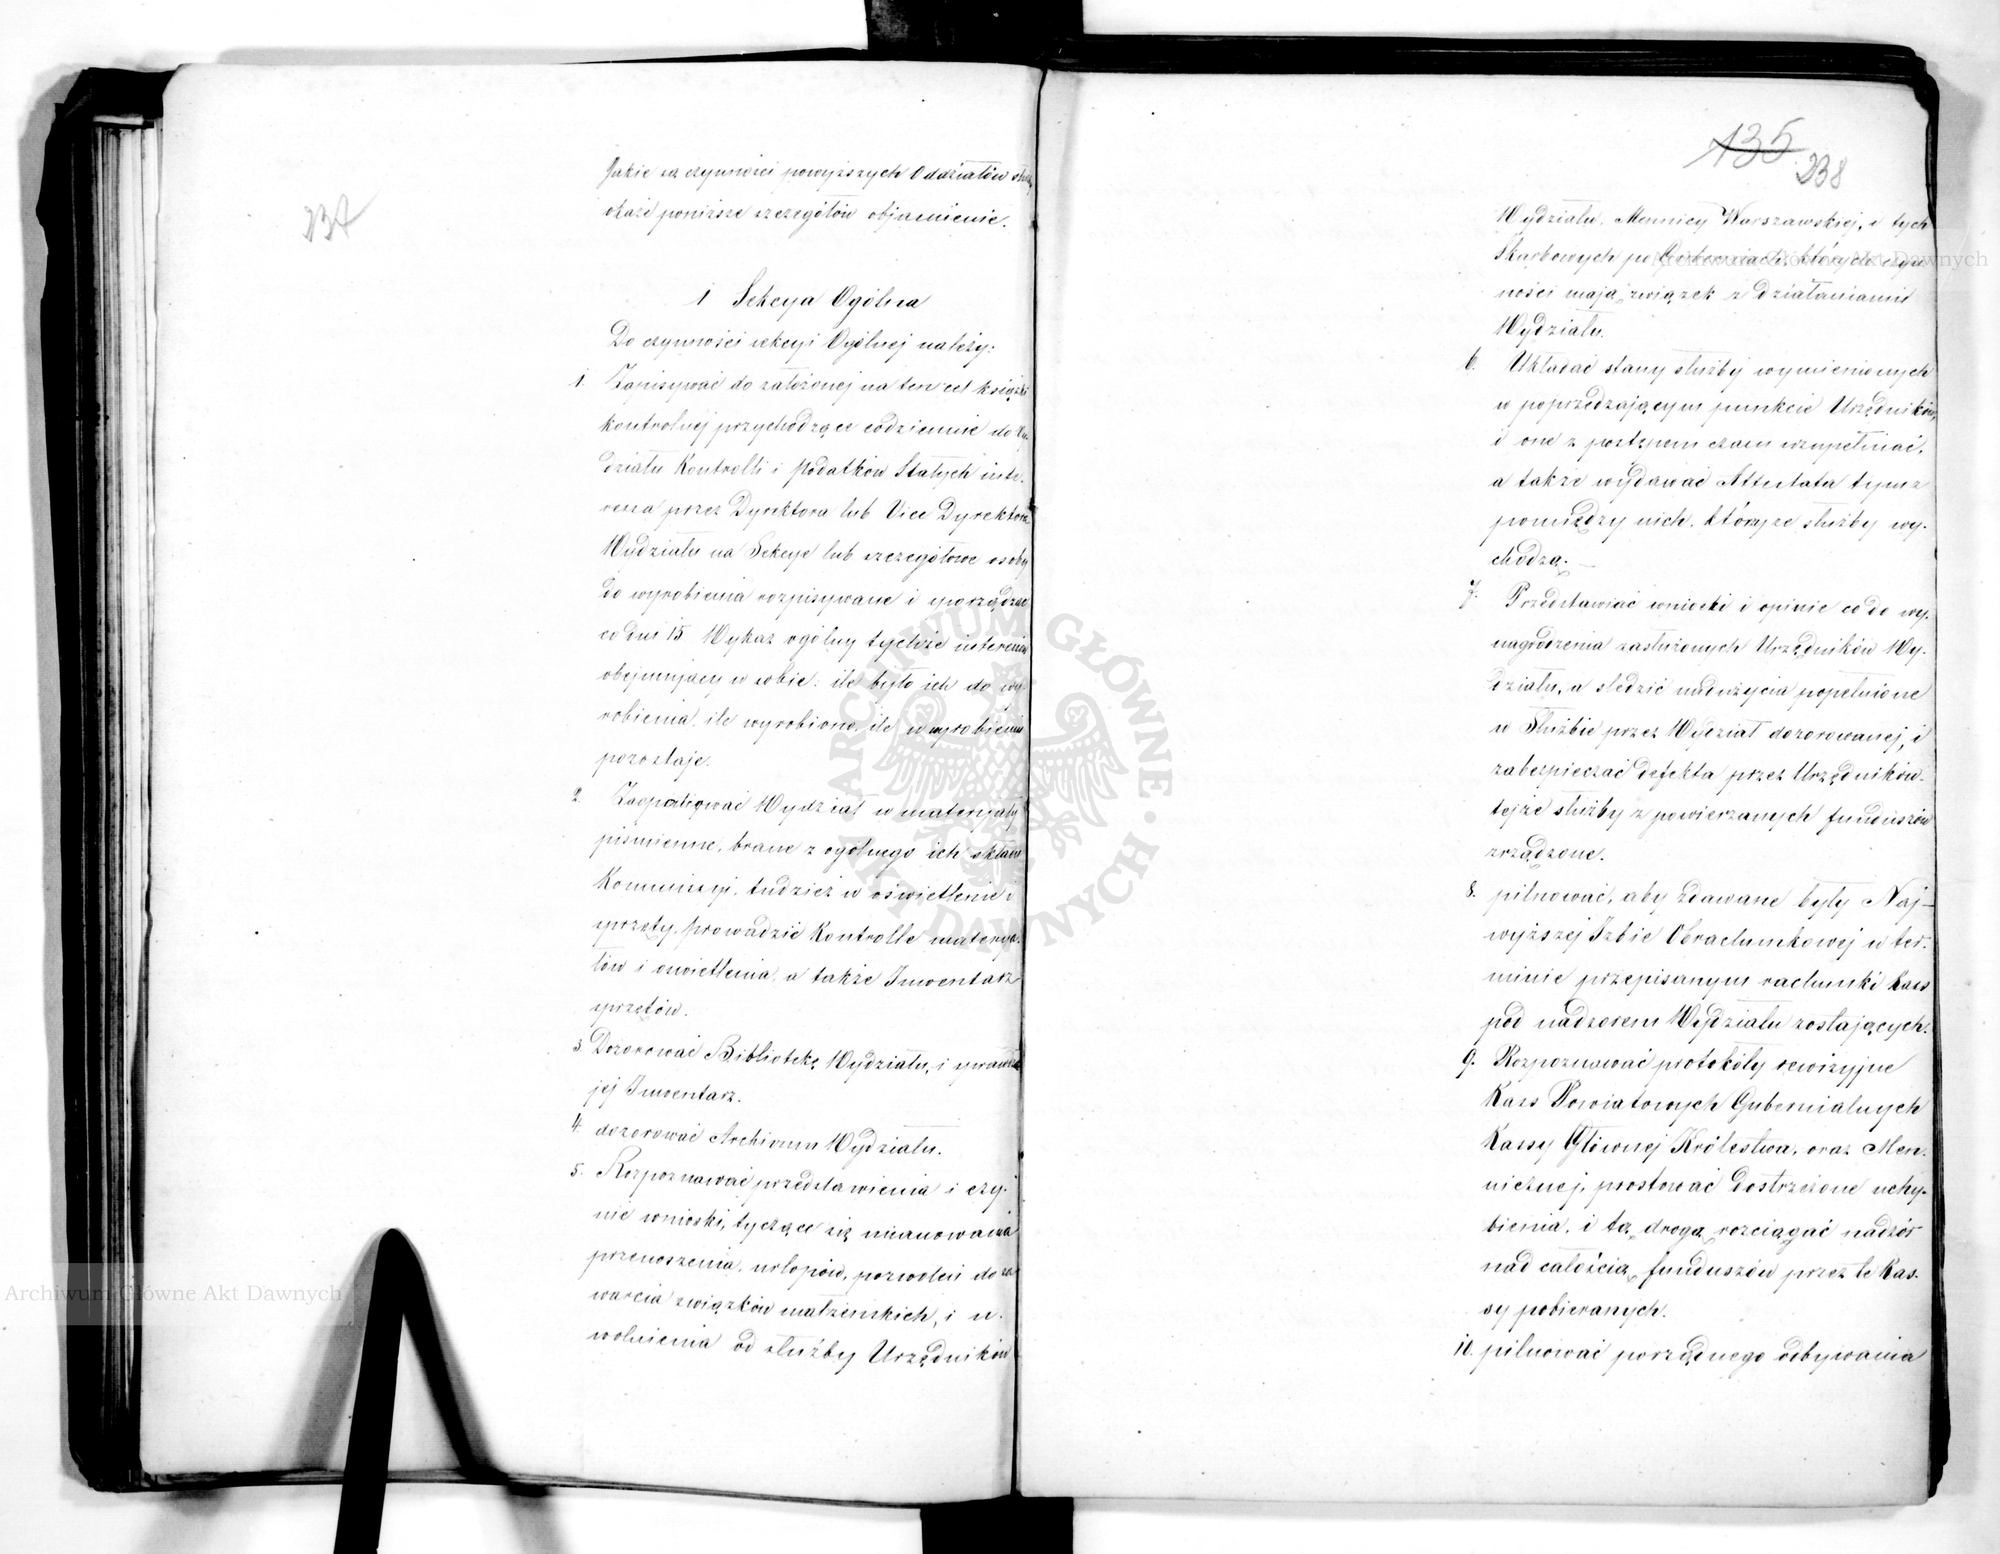 237
Jakie są czynności powyższych Oddziałów
okaże poniższe szczegółów objaśnienie.
1 Sekcya Ogólna
Do czynności sekcyi Ogólnej należy:
1. Zapisywać do założonej na ten cel książki
kontrolnej przychodzące codziennie do Wy-
działu Kontrolli i Podatków Stałych inte-
ressa przez Dyrektora lub Vice Dyrektora
Wydziału na Sekcye lub szczegółowe osoby
do wyrobienia rozpisywane i sporządzać
co dni 15 Wykaz ogólny tychże interessów
obejmujący w sobie. ile było ich do wy-
robienia, ile wyrobiono, ile w wyrobieniu
pozostaje.
2 Zaopatrywać Wydział w materyały
piśmienne, brane z ogólnego ich składu
Kommissyi, tudzież w oświetlenie i
sprzęty, prowadzić Kontrolle materya-
łów i oświetlenia, a także Inwentarz
sprzętów.
3 Dozorować Bibliotekę Wydziału, i sprawdzać
jej Inwentarz.
4. dozorować Archivum Wydziału.
5. Rozpoznawać przedstawienia i czy-
nić wnioski, tyczące się mianowania
przenoszenia, urlopów, pozwoleń do za-
warcia związków małżeńskich, i u-
wolnienia od służby Urzędników
135
238
Wydziału, Mennicy Warszawskiej, i tych
Skarbowych po Guberniach, których czyn
ności mają związek z działaniami
Wydziału.
6. Układać stany służby wymienionych
w poprzedzającym punkcie Urzędników,
i one z postępem czasu uzupełniać,
a także wydawać Attestata tym z
pomiędzy nich, którzy ze służby wy-
chodzą.
7. Przedstawiać wnioski i opinie co do wy-
nagrodzenia zasłużonych Urzędników Wy-
działu, a śledzić nadużycia popełnione
w Służbie przez Wydział dozorowanej, i
zabezpieczać defekta przez Urzędników
tejże służby z powierzanych funduszów
zrządzone.
8. pilnować, aby zdawane były Naj-
wyższej Izbie Obrachunkowej w ter-
minie przepisanym rachunki Kass
pod nadzorem Wydziału zostających.
9. Rozpoznawać protokóły rewizyjne
Kass Powiatowych Gubernialnych
Kassy Głównej Królestwa, oraz Men-
niczej, prostować dostrzeżone uchy-
bienia, i tą drogą rozciągać nadzór
nad całością funduszów przez te Kas-
sy pobieranych.
10. pilnować porządnego odbywania
ARCHIWUM GŁÓWNE AKT DAWNYCH
Archiwum Główne Akt Dawnych
Archiwum Główne Akt Dawnych